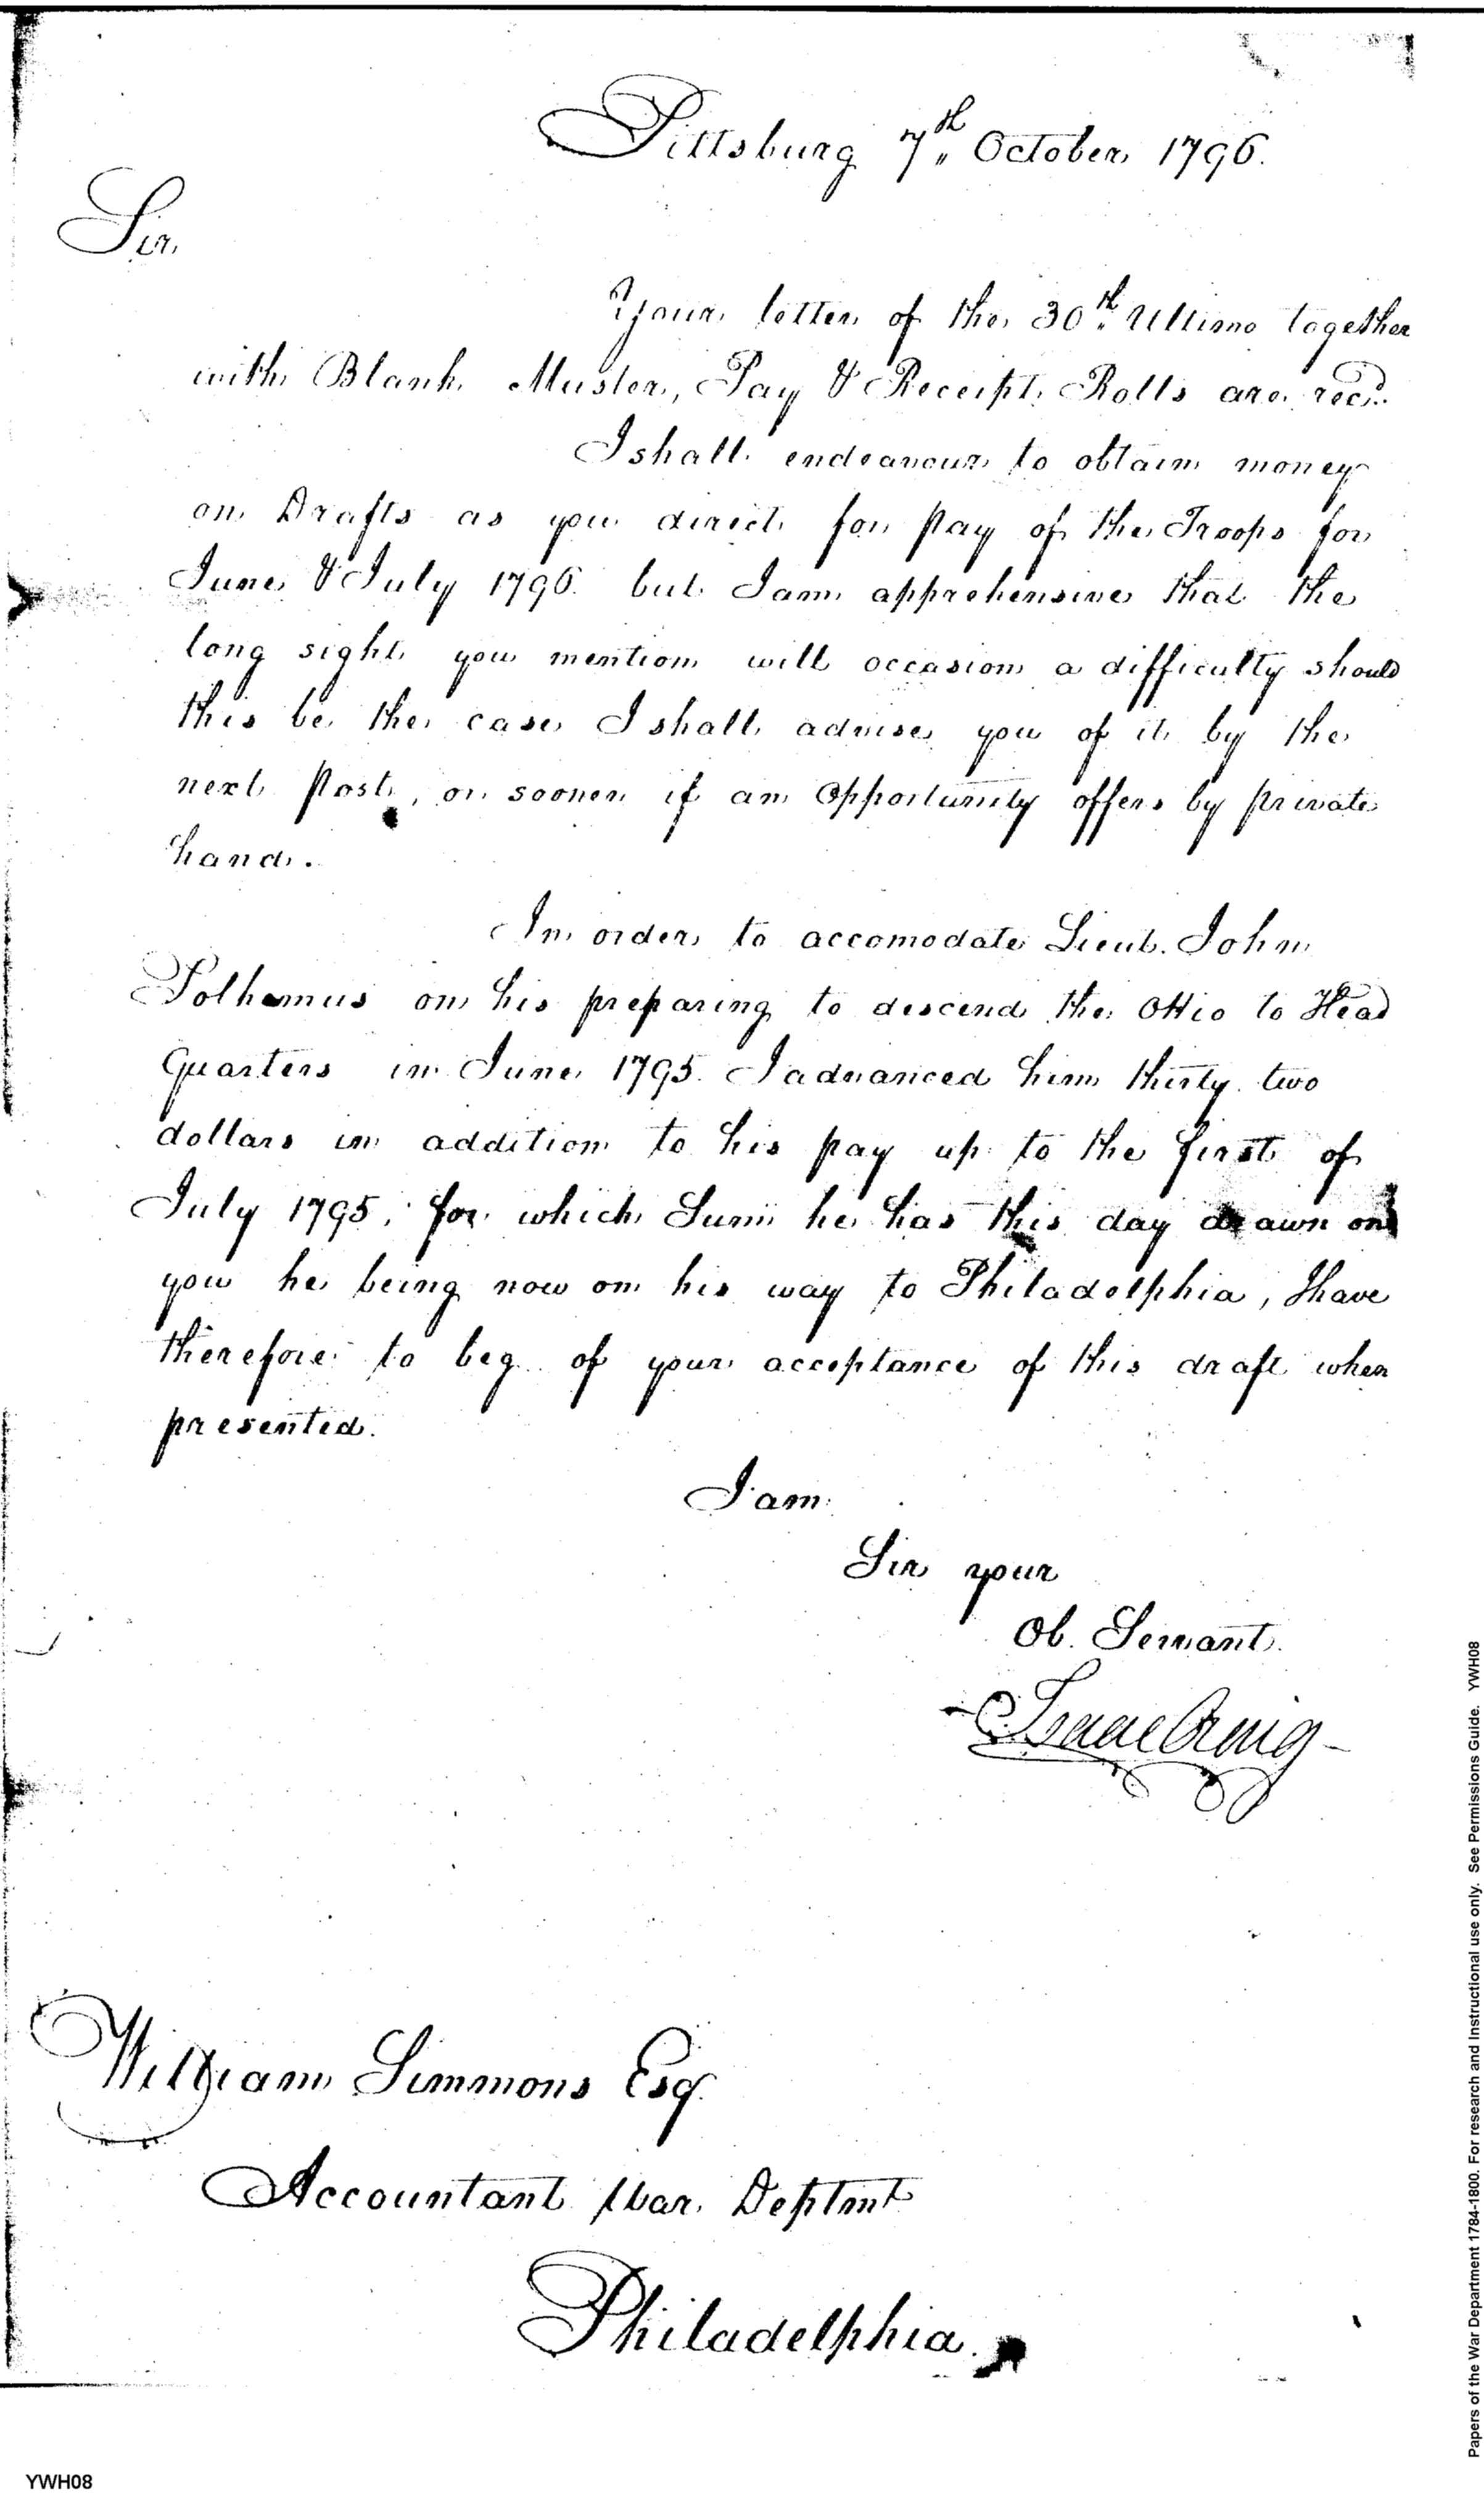 Pittsburg 7th October 1796.
Sir
Your letter of the 30th Ultimo together
with Blank Muster, Pay & Receipt Rolls are recd.
I shall endeavour to obtain money
on Drafts as you direct for pay of the Troops for
June & July 1796. but I am apprehensive that the
long sight you mention will occasion a difficulty should
this be the case I shall advise you of it by the
next Post, or sooner if an Opportunity offers by private
hand.
In order to accomodate Lieut. John
Polhemus on his preparing to descend the Ohio to Head
Quarters in June 1795. I advanced him thirty two
dollars in addition to his pay up to the first of
July 1795, for which Sum he has this day drawn on
you he being now on his way to Philadelphia, I have
therefore to beg of your acceptance of this draft when
presented.
I am
Sir your
Ob. Servant.
Isaac Craig
William Simmons Esq.
Accountant War Deptmt
Philadelphia.
YWH08
Papers of the War Department 1784-1800. For research and Instructional use only. See Permissions Guide. YWH08